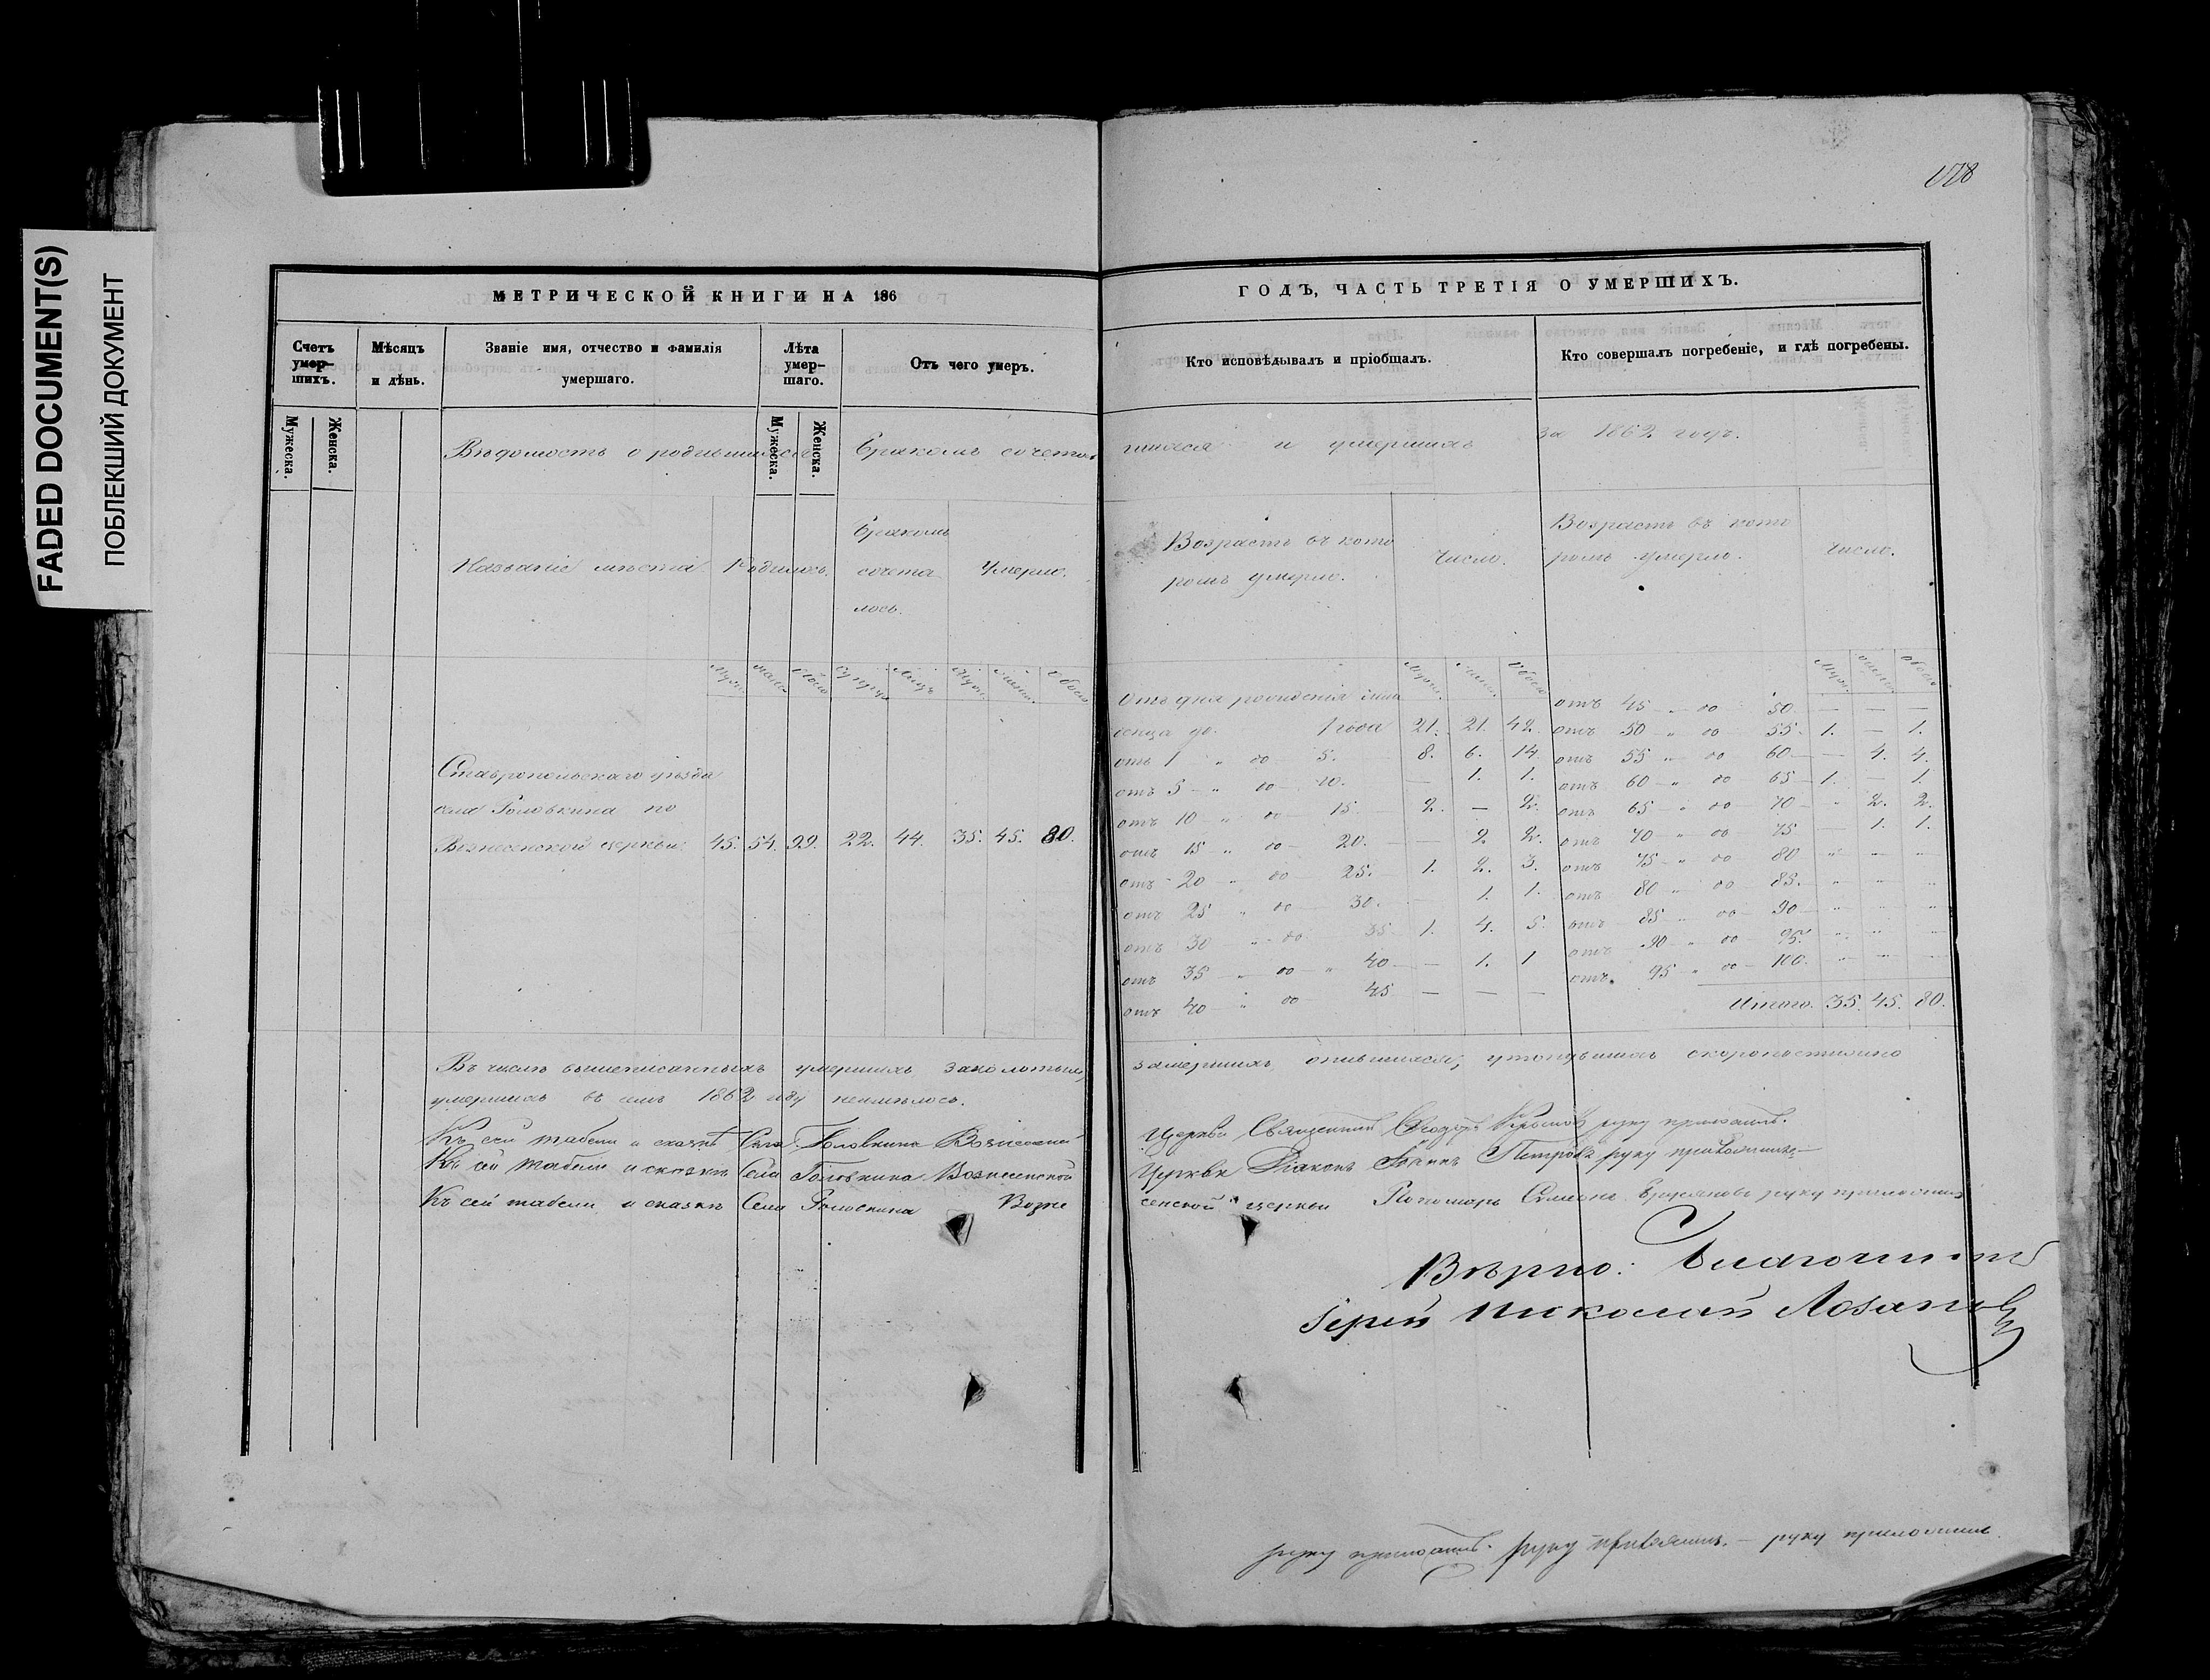 FADED DOCUMENT(S)
ПОБЛЕКШИЙ ДОКУМЕНТ
МЕТРИЧЕСКОЙ КНИГИ НА 186
Счетъ умер-шихъ.
Мѣсяцъ и день.
Званіе имя, отчество и фамилія умершаго.
Лѣта умер-шаго.
Отъ чего умеръ.
Мужеска.
Женска.
Мужеска.
Женска.
Вѣдомость о родившихся бракомъ сочетав
Названіе мѣста
Родилось.
Бракомъ
сочета
лось.
Умерло.
Муж. Обоего Супруж. Лицъ Муж. Женс. Обоего
Ставропольскаго уѣзда
села Головкина по
Вознесенской церкви. 45. 54. 99. 22. 44. 35. 45. 80.
Въ числѣ вышеписанныхъ умершихъ заколотыхъ,
умершихъ въ семъ 1862 году неимѣлось.
Къ сей табели и сказкѣ Села Головкина Вознесенской
Къ сей табели и сказкѣ Села Головкина Вознесенской
Къ сей табели и сказкѣ Села Головкина Возне
ГОДЪ, ЧАСТЬ ТРЕТІЯ О УМЕРШИХЪ.
Кто исповѣдывалъ и пріобщалъ.
Кто совершалъ погребеніе, и гдѣ погребены.
шихся и умершихъ за 1862 годъ.
Возрастъ въ кото
ромъ умерло.
Число.
Возрастъ въ кото
ромъ умерло.
Число.
Муж. Женс. Обоего
Муж. Женс. Обоего
Отъ дня рожденія мла
денца до 1 года 21. 21. 42.
отъ 1 " до 5. 8. 6. 14.
отъ 5 " до 10. — 1. 1.
отъ 10 " до 15 2. — 2.
отъ 15 " до 20. — 2. 2.
отъ 20 " до 25. 1. 2. 3.
отъ 25 " до 30. — 1. 1.
отъ 30 " до 35 1. 4. 5.
отъ 35 " до 40 — 1. 1
отъ 40 " до 45 — — —
отъ 45 " до 50. — — —
отъ 50 " до 55. 1. — 1.
отъ 55 " до 60 — 4. 4.
отъ 60 " до 65 1. — 1.
отъ 65 " до 70 " 2. 2.
отъ 70 " до 75 — 1. 1.
отъ 75 " до 80 " " "
отъ 80 " до 85. " " "
отъ 85 " до 90 " " "
отъ 90 " до 95. " " "
отъ 95 " до 100. " " "
Итого. 35. 45. 80.
замершихъ опившихся, утонувшихъ скоропостижно
Церкви Священникъ Ѳеодоръ руку приложилъ.
Церкви Діаконъ Іоаннъ Петровъ руку приложилъ.
сенской церкви Пономарь Симеонъ руку приложилъ
Вѣрно: Благочинный
Іерей Николай Лозановъ
руку приложилъ. руку приложилъ. — руку приложилъ